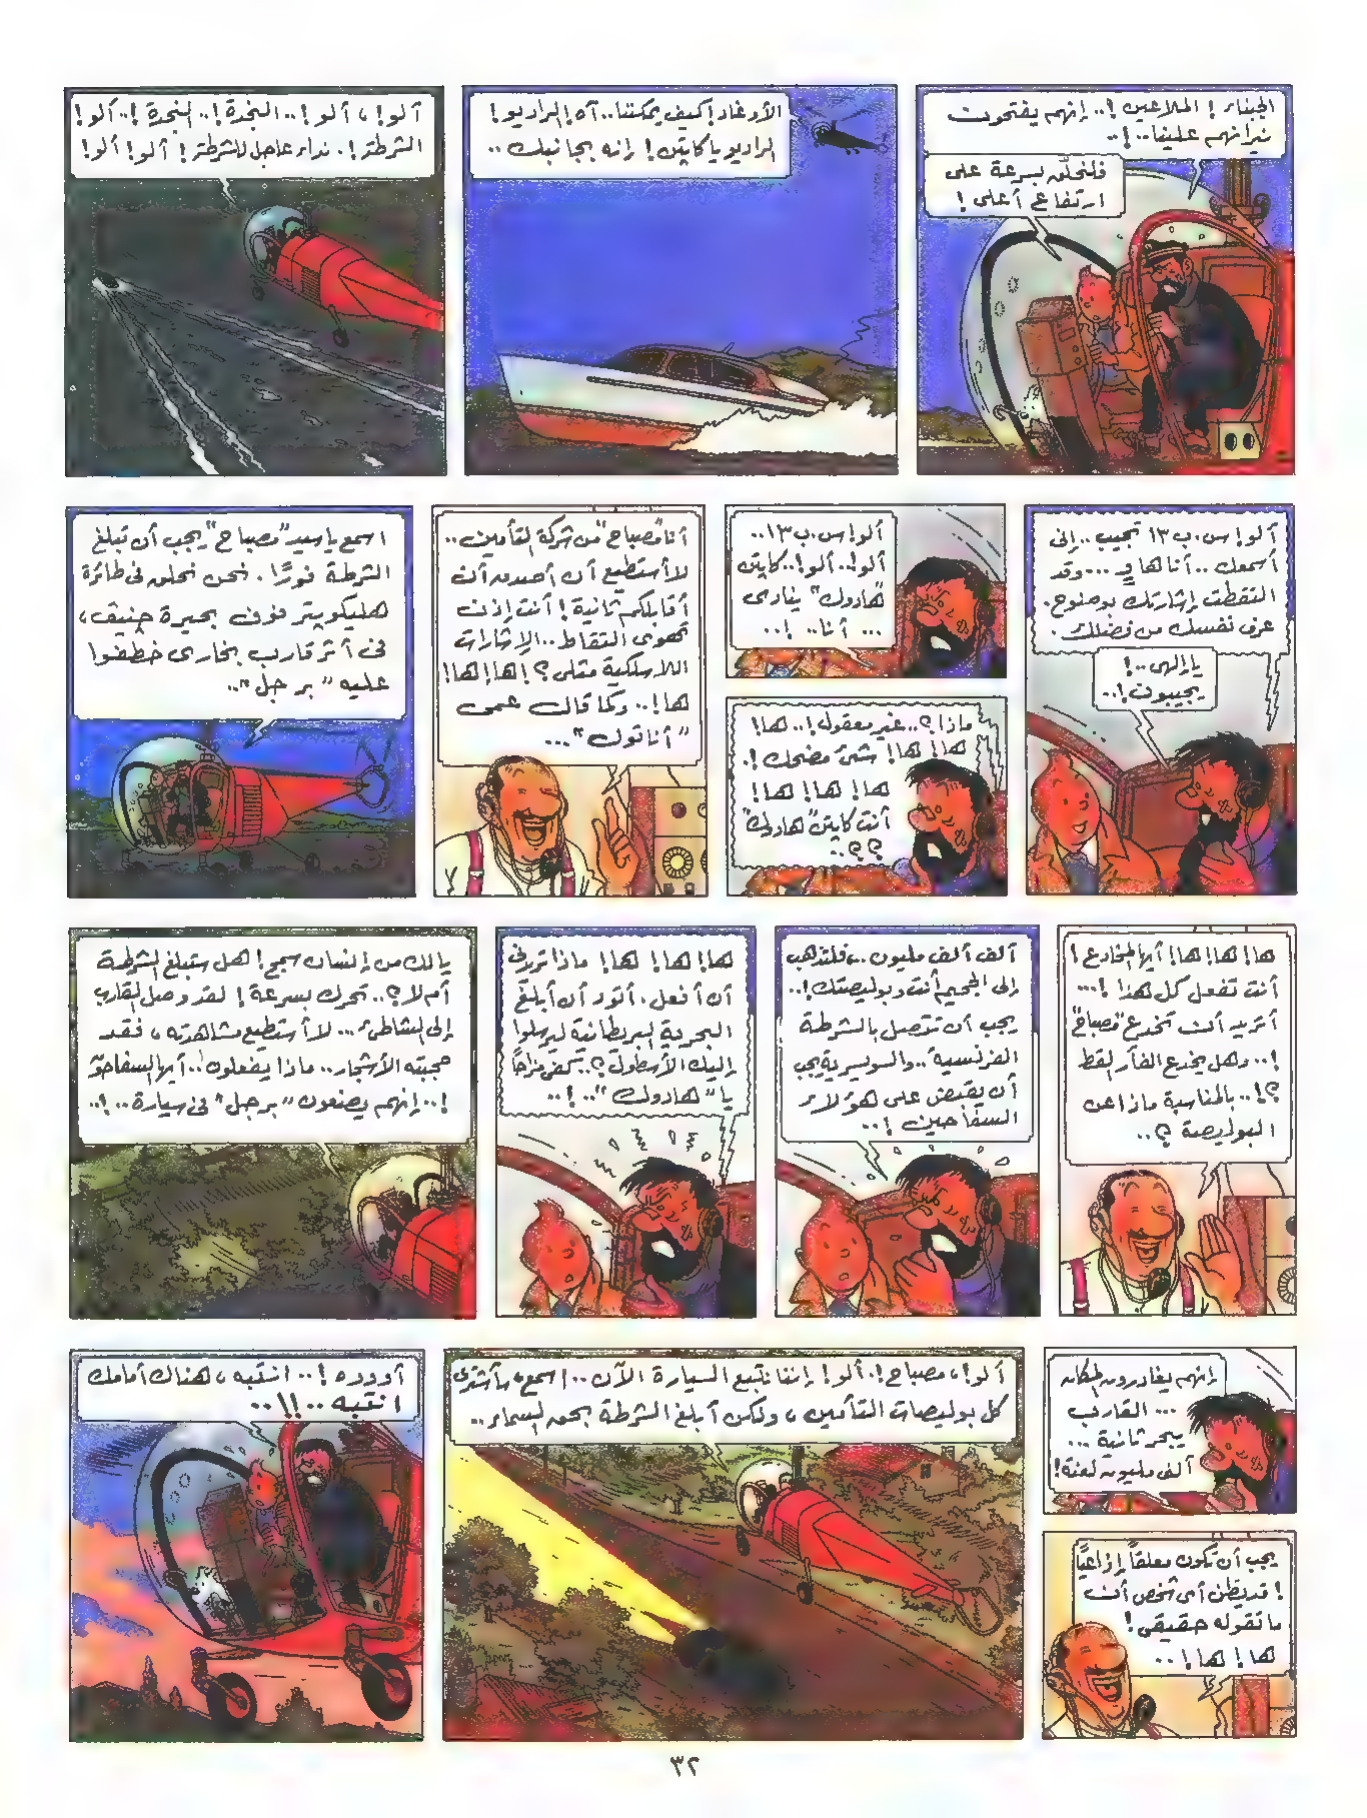 الجبناء ! الملاعين !.. إنهم يفتحون
نيرانهم علينا..!..
فلنحلق بسرعة على
ارتفاع أعلى !
الأوغاد ! كيف يمكننا.. آه ! الراديو !
الراديو يا كابتن ! إنه بجانبك ..
ألو ! ، ألو ! .. النجدة ! .. النجدة ! .. ألو !
الشرطة ! . نداء عاجل للشرطة ! ألو ! ألو !
ألو ! س.ب ١٣ تجيب .. إنى
أسمعك .. أنا هاوٍ ... وقد
التقطت إشارتك بوضوح .
عرف نفسك من فضلك .
يا إلهى .. !
يجيبون ! ..
ألو ! س.ب ١٣ ..
ألو ! .. ألو ! .. كابتن
"هادوك" ينادى
... أنا .. ! ..
ماذا ؟ .. غير معقول ! .. ها !
ها ! ها ! شئ مضحك ! .
ها ! ها ! ها !
أنت كابتن "هادوك"
؟ ؟ ..
أنا "مصباح" من شركة التأمين ..
لا أستطيع أن أصدق أن
أقابلكم ثانية ! أنت إذن
تهوى التقاط .. الإشارات
اللاسلكية مثلى ؟ ! ها ! ها !
ها ! .. وكما قال عمى
"أناتول" ...
اسمع يا سيد "مصباح" يجب أن تبلغ
الشرطة فورًا . نحن نحلق فى طائرة
هليكوبتر فوق بحيرة چنيف ،
فى أثر قارب بخارى خطفوا
عليه "برجل" ..
ها ! ها ! ها ! أيها المخادع !
أنت تفعل كل هذا ! ...
أتريد أن تخدع "مصباح"
! .. وهل يخدع الفأر القط
؟ ! .. بالمناسبة ماذا عن
البوليصة ؟ ..
ألف ألف مليون .. فلتذهب
إلى الجحيم أنت وبوليصتك ! ..
يجب أن تتصل بالشرطة
الفرنسية .. والسويسرية يجب
أن يقبض على هؤلاء
السفاحين ! ..
ها ! ها ! ها ! ماذا تريدنى
أن أفعل . أتود أن أبلغ
البحرية البريطانية ليرسلوا
إليك الأسطول ؟ .. كفى مزاحًا
يا "هادوك" .. ! ..
يالك من إنسان سمج ! هل ستبلغ الشرطة
أم لا ؟ .. تحرك بسرعة ! لقد وصل القارب
إلى الشاطئ ... لا أستطيع مشاهدته ، فقد
حجبته الأشجار .. ماذا يفعلون .. أيها السفاحون
! .. إنهم يضعون "برجل" فى سيارة .. ! ..
إنهم يغادرون المكان
... القارب
يبحر ثانية ...
ألف مليون لعنة !
يجب أن تكون معلقًا إذاعيًا
! قد يظن أى شخص أن
ما تقوله حقيقى !
ها ! ها ! ..
ألو ! ، مصباح ! . ألو ! إننا نتبع السيارة الآن .. اسمع ، سأشترى
كل بوليصات التأمين ، ولكن أبلغ الشرطة بحق السماء ..
أووووه ! .. انتبه ، هناك أمامك
انتبه .. ! ! ..
٣٢